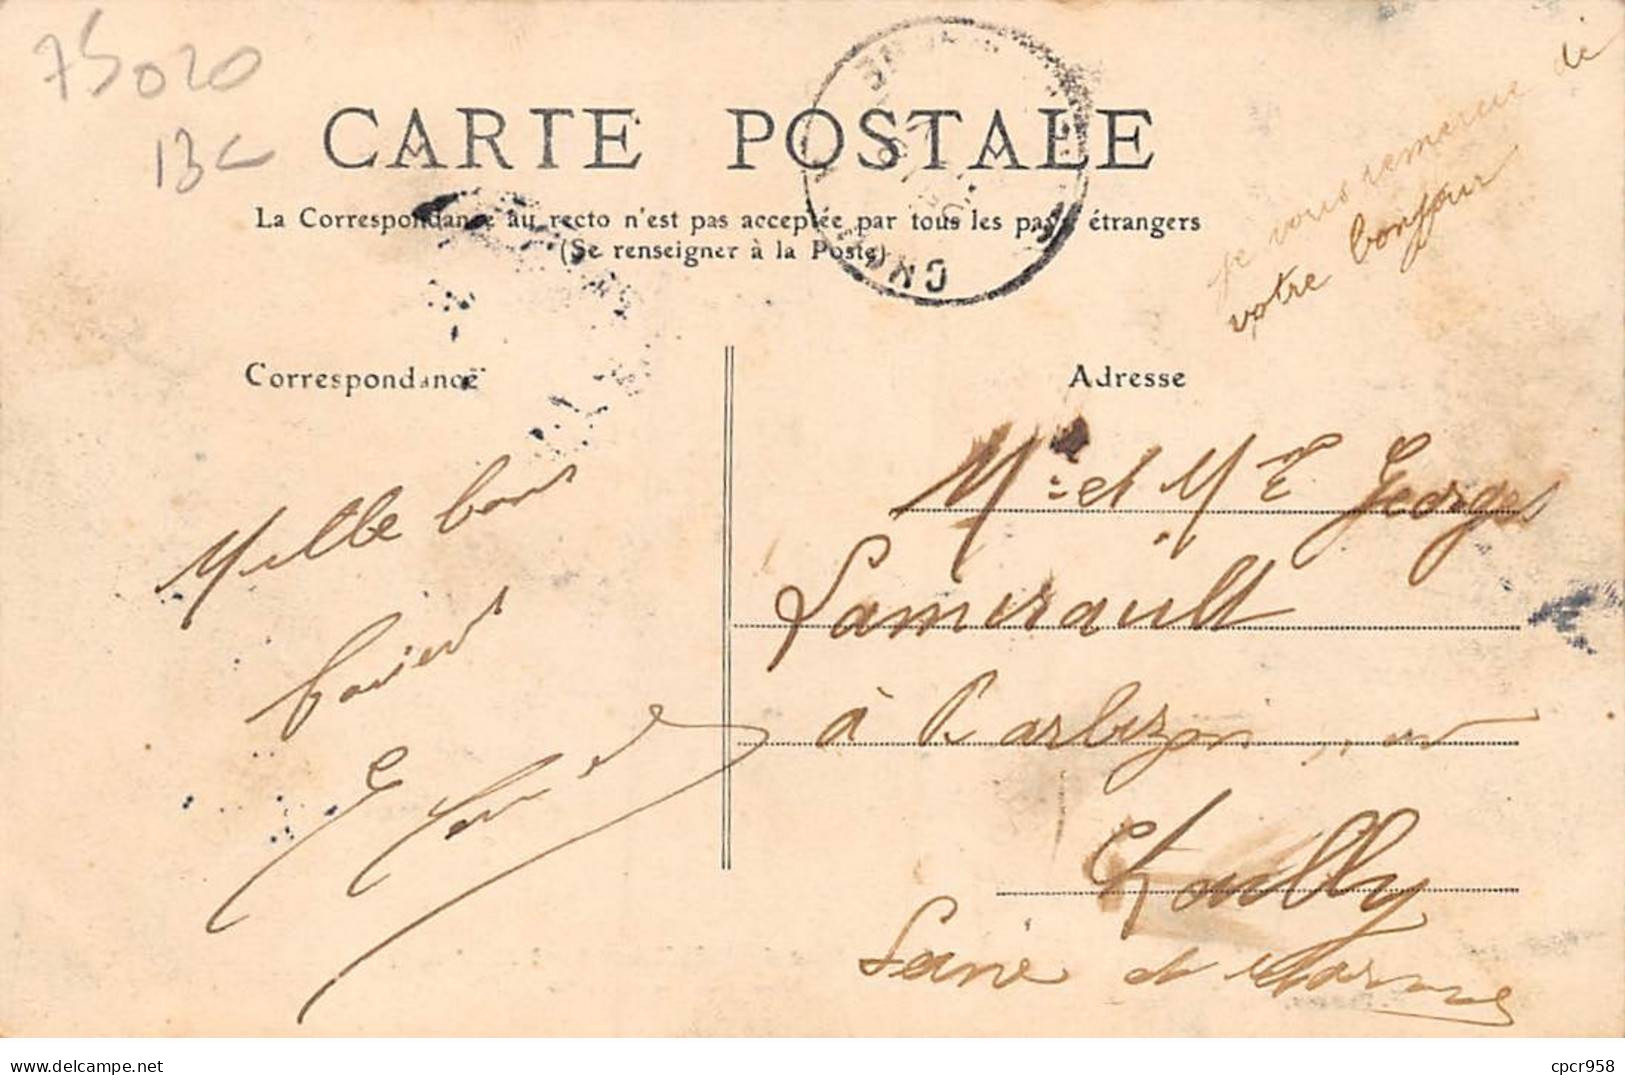 75020
13 c
CARTE POSTALE
La Correspondance au recto n'est pas acceptée par tous les pays étrangers
(Se renseigner à la Poste)
je vous remercie de
votre bonjour
Correspondance
Adresse
Mille bons
baisers
Mr et Mme Georges
Lamirault
à Barbizon
Chailly
Seine et Marne
cpcr958